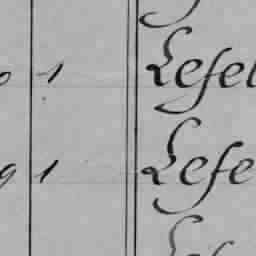 1 Lefel
9 1 Lefe